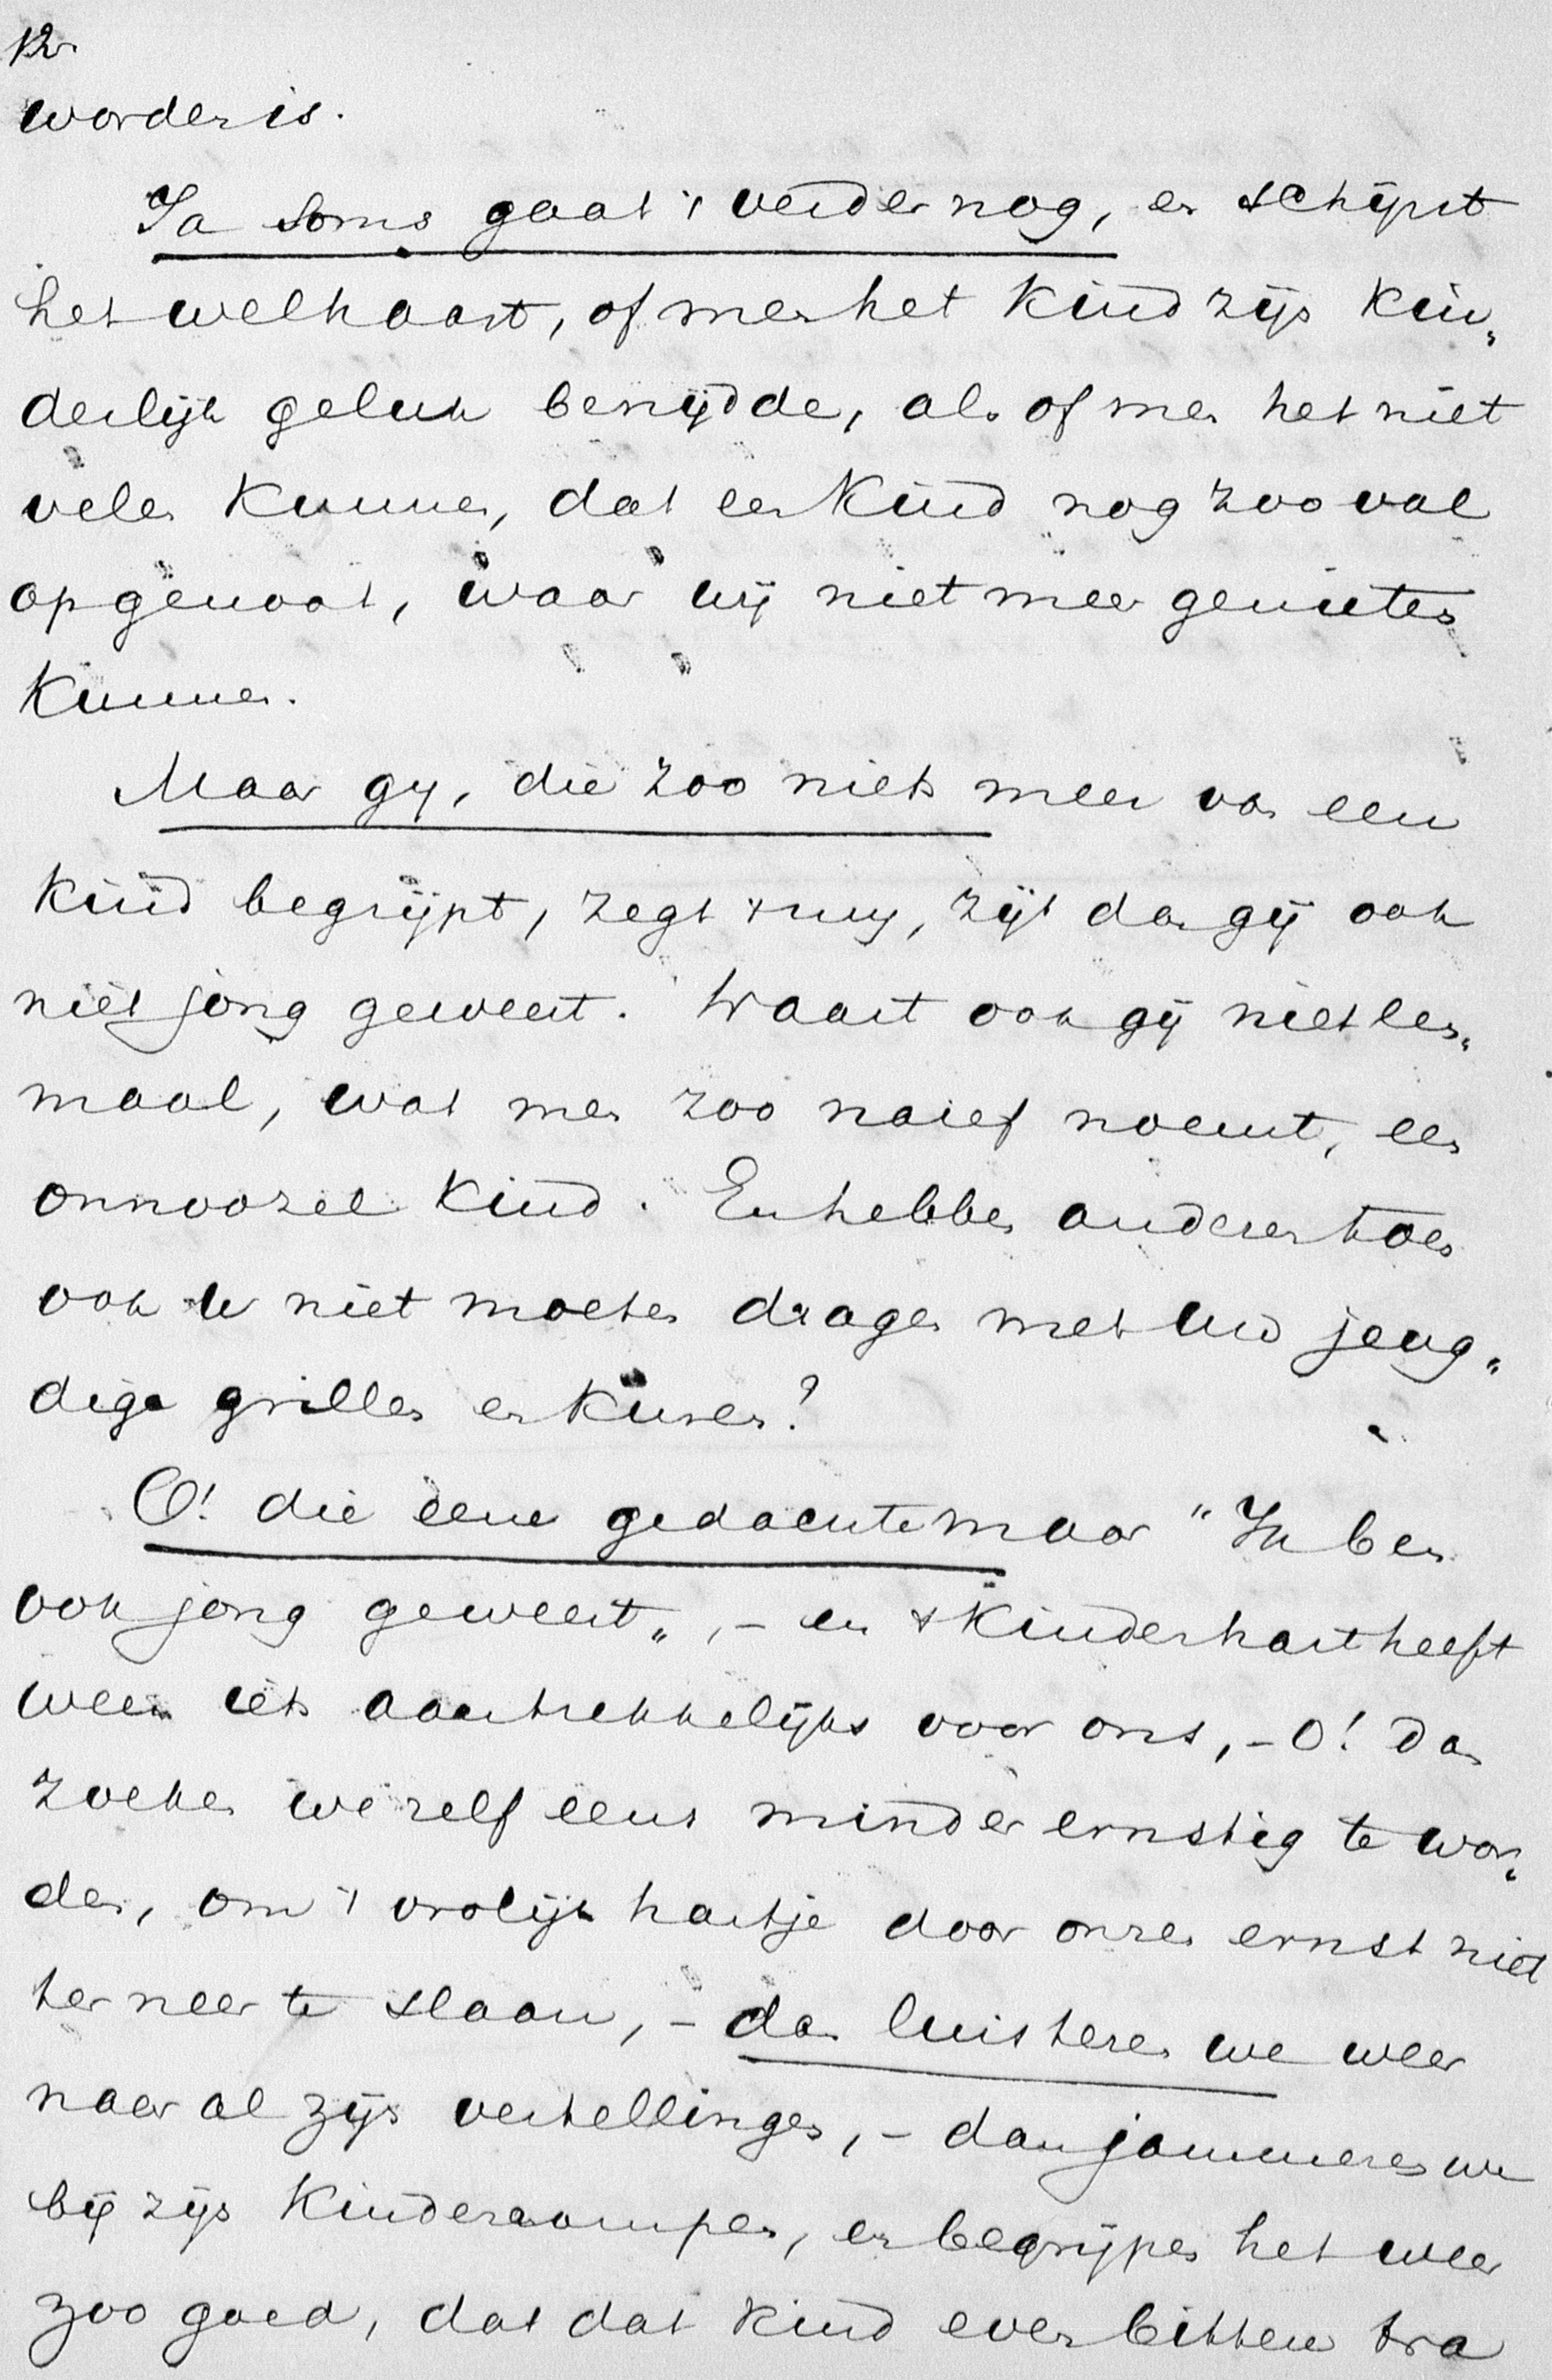 12.
worden is.
Ja soms gaat 't verder nog, en schijnt
het welhaast, of men het kind zijn kin„
derlijk geluk benijdde, als of men het niet
velen kunne, dat een kind nog zoo val
op genoot, waar wij niet meer genieten
kunnen.
Maar gij, die zoo niets meer van een
kind begrijpt, zegt 't mij, zijt dan gij ook
niet jong geweest. Waart ook gij niet een„
maal, wat men zoo naief noemt, een
onnoozel kind. En hebben anderen toen
ook u niet moeten dragen met uw jeug„
dige grillen en kuren?
O! die eene gedachte maar "Ik ben
ook jong geweest„, – en 't kinderhart heeft
weer iets aantrekkelijks voor ons, – O! dan
zoeken we zelf eens minder ernstig te wor„
den, om 't vrolijk hartje door onzen ernst niet
ter neer te slaan, – dan luisteren we weer
naar al zijn vertellingen, – dan jammeren we
bij zijn kinderrampen, en begrijpen het weer
zoo goed, dat dat kind even bitteren tra